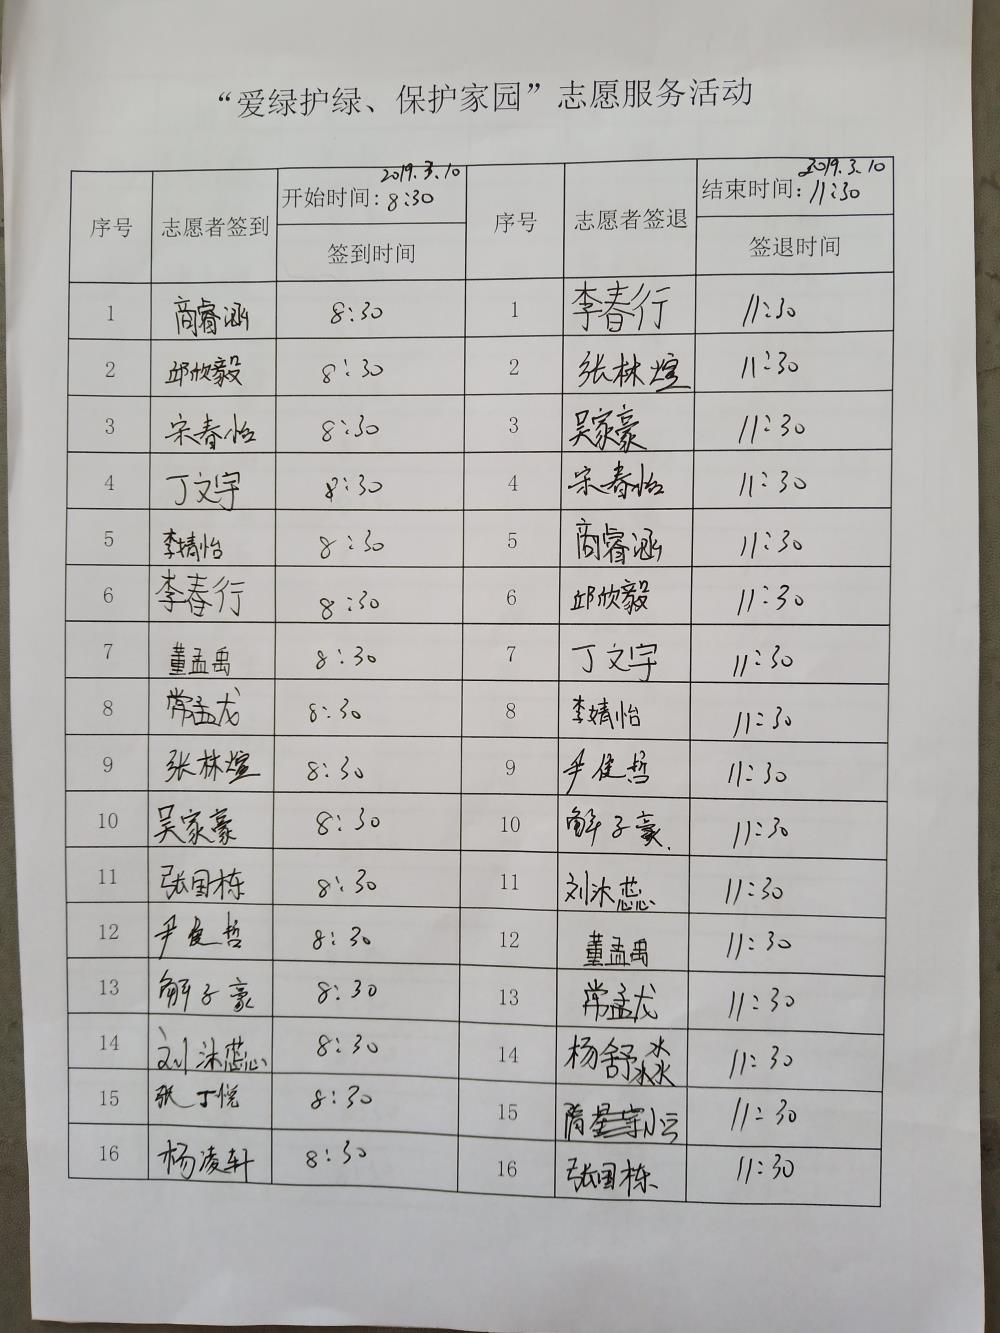 “爱绿护绿、保护家园”志愿服务活动
序号 志愿者签到 开始时间: 2019.3.10 8:30 序号 志愿者签退 结束时间: 2019.3.10 11:30
签到时间 签退时间
1 商睿涵 8:30 1 李春行 11:30
2 邱欣毅 8:30 2 张林煊 11:30
3 宋春怡 8:30 3 吴家豪 11:30
4 丁文宇 8:30 4 宋春怡 11:30
5 李婧怡 8:30 5 商睿涵 11:30
6 李春行 8:30 6 邱欣毅 11:30
7 董孟禹 8:30 7 丁文宇 11:30
8 常孟龙 8:30 8 李婧怡 11:30
9 张林煊 8:30 9 尹俊哲 11:30
10 吴家豪 8:30 10 解子豪 11:30
11 张国栋 8:30 11 刘沐蕊 11:30
12 尹俊哲 8:30 12 董孟禹 11:30
13 解子豪 8:30 13 常孟龙 11:30
14 刘沐蕊 8:30 14 杨舒淼 11:30
15 张丁悦 8:30 15 隋 11:30
16 杨凌轩 8:30 16 张国栋 11:30